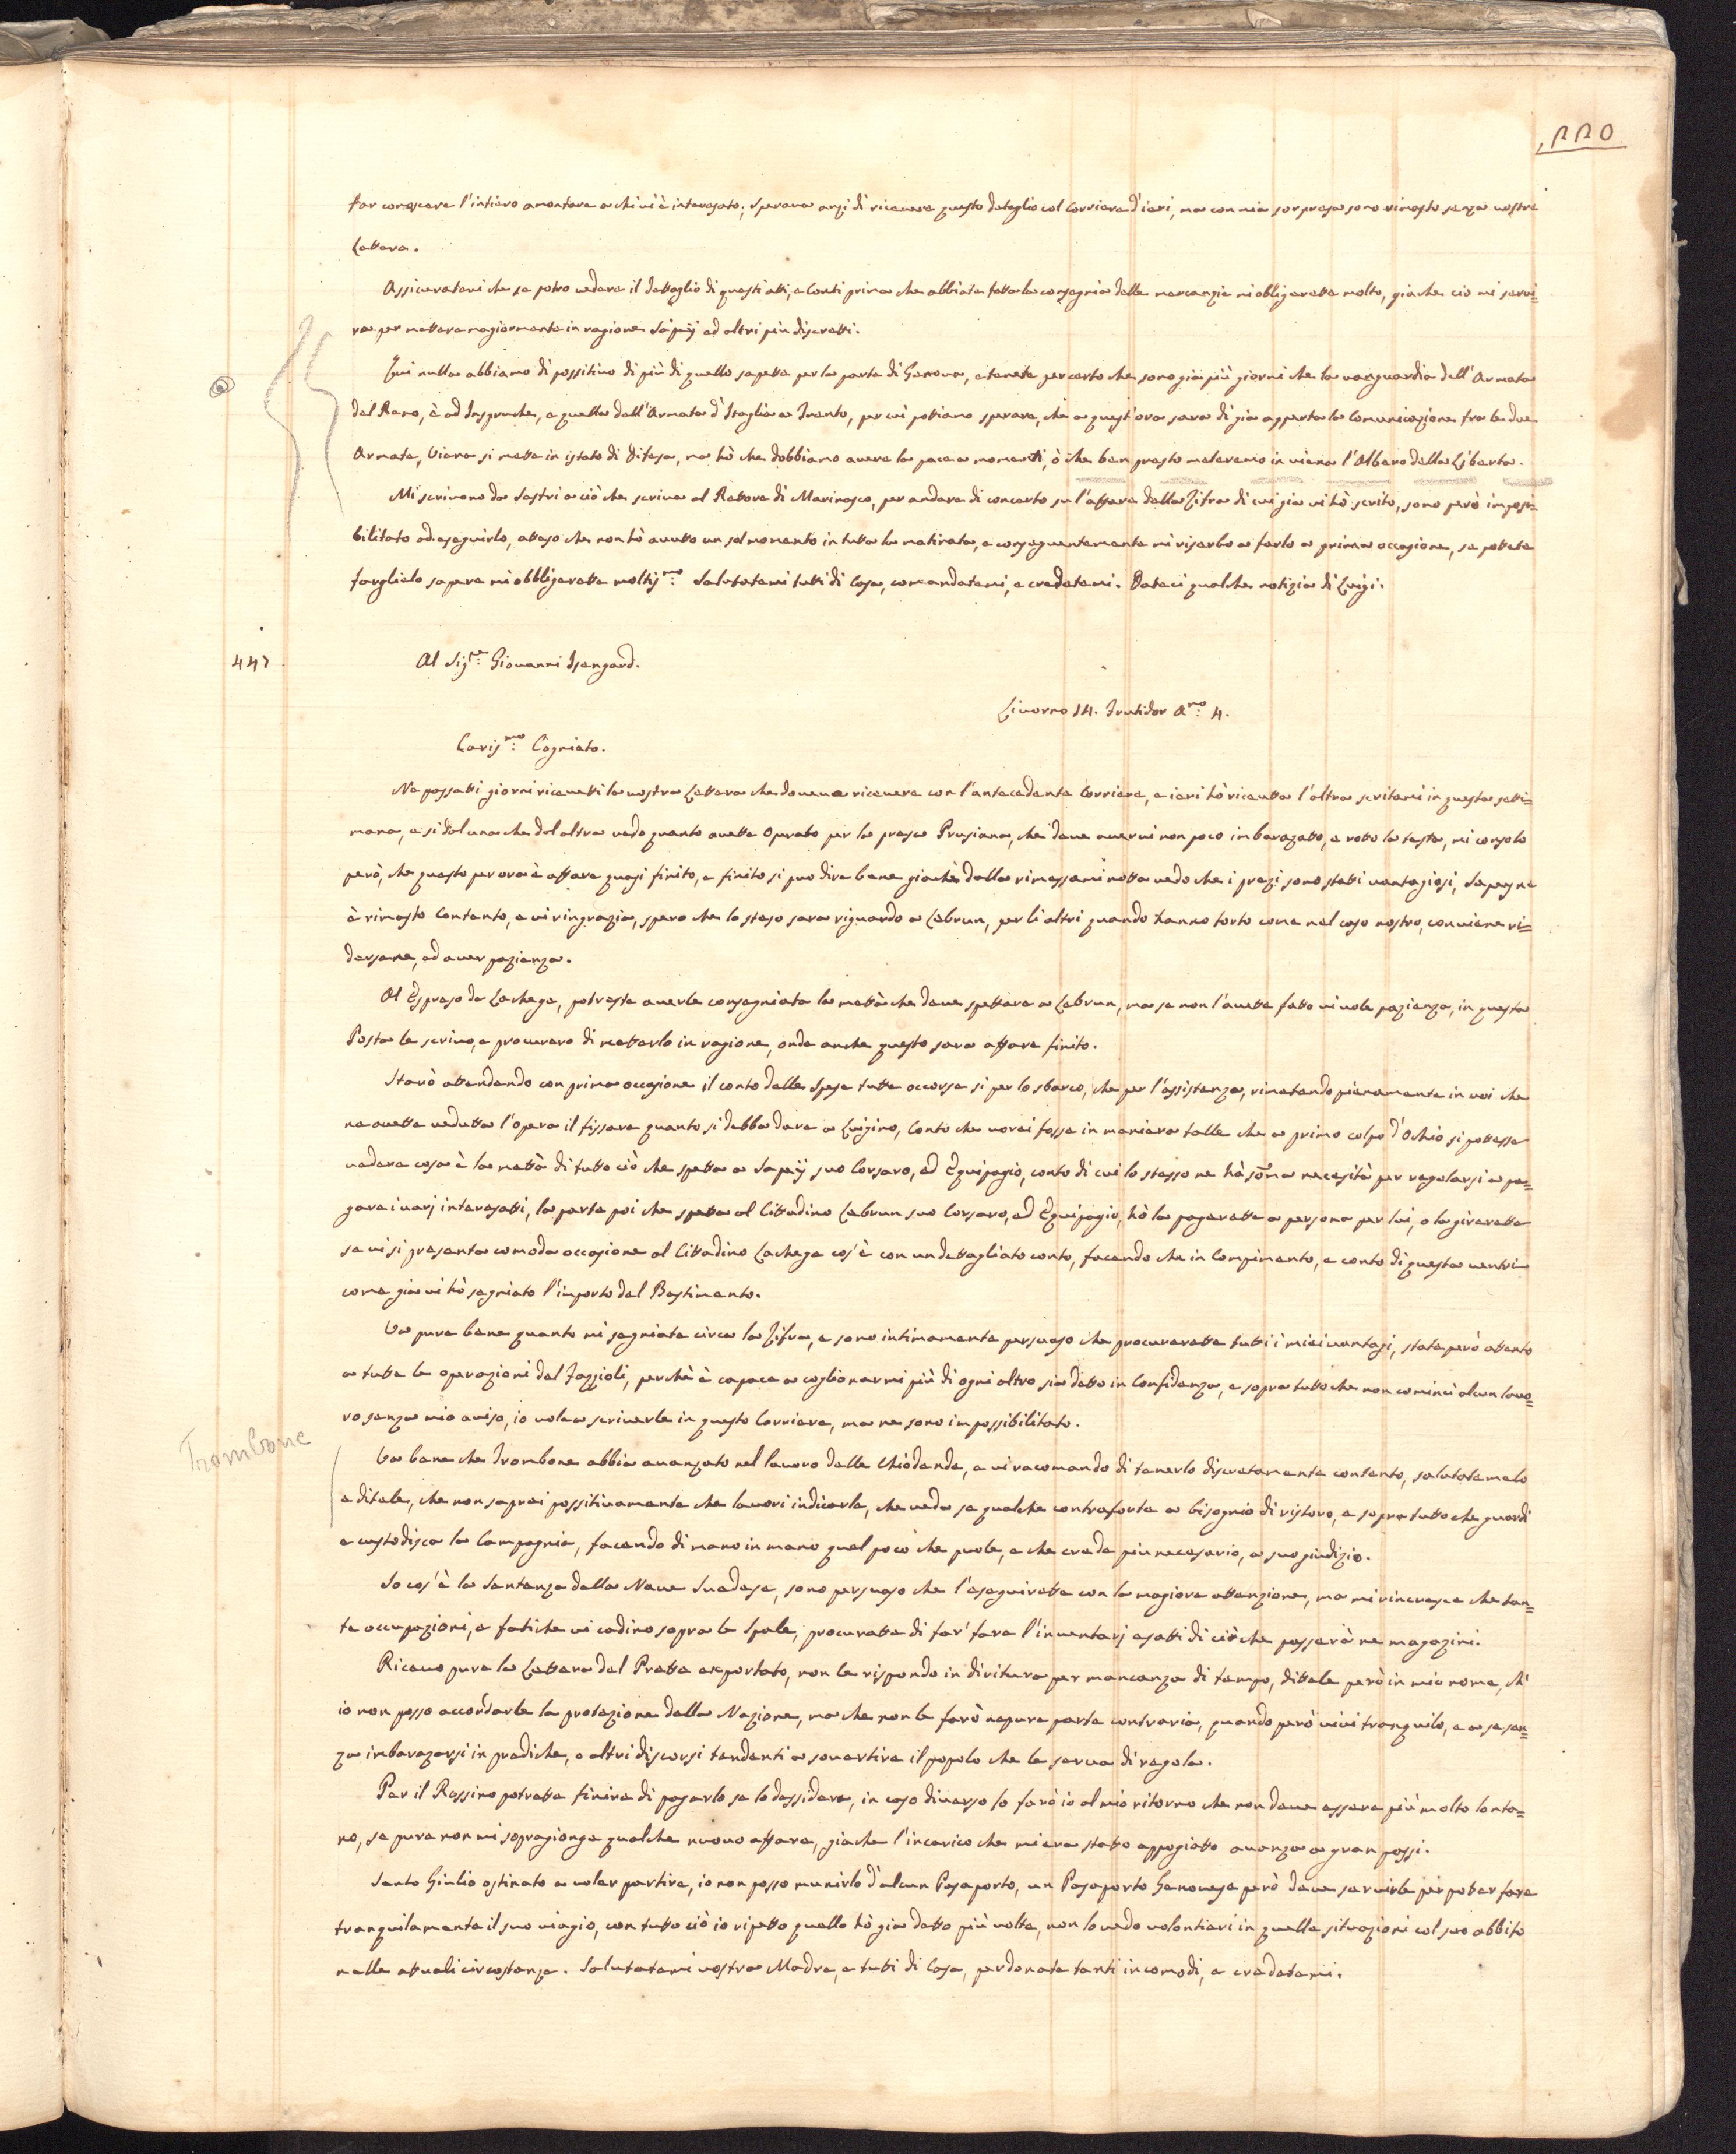 220
far conoscere l'intiero amontare a chi vi è interesato; sperava anzi di ricevere questo detaglio col Corriere d'ieri, ma con mia sorpresa sono rimasto senza vostre
Lettere.
Assicuratevi che se potro vedere il dettaglio di questi atti, e Conti prima che abbiate fatta la consegnia delle mercanzie mi obligarette molto, giache ciò mi servi=
ra per mettere magiormente in ragione Sapey ed altri più discretti.
Qui nulla abbiamo di possitivo di più di quello sapette per la parte di Genova, e tenete per certo che sono gia più giorni che la vanguardia dell'Armata
del Reno, è ad Inspruche, e quella dell'Armata d'Itaglia a Trento, per cui pottiamo sperare, che a quest'ora sara di gia apperta la Comunicazione fra le due
Armate, Viena si mette in istato di difesa, ma hò che dobbiamo avere la pace a momenti, ò che ben presto meteremo in viena l'Albero della Liberta.
Mi scrivono da Sestri a ciò che scriva al Rettore di Marinasco, per andare di concerto su l'affare della Zifra di cui gia vi hò scrito, sono però imposi=
bilitato ad eseguirlo, atteso che non hò avutto un sol momento in tutta la matinata, e conseguentemente mi riserbo a farlo a prima occasione, se pottete
farglielo sapere mi obbligarette moltis.mo Salutatemi tutti di Casa, comandatemi, e credetemi. Dateci qualche notizia di Luigi.
447
Al Sig.re Giovanni Isengard.
Livorno 14. Frutidor A.no 4.
Caris.mo Cogniato.
Ne passatti giorni ricevetti la vostra Lettera che doveva ricevere con l'antecedente Corriere, e ieri hò ricevutta l'altra scritami in questa setti=
mana, e si dal una che dal altra vedo quanto avette Operato per la presa Prusiana, che deve avervi non poco imbarazatto, e rotto la testa, mi consolo
però, che questo per ora è affare quasi finito, e finito si puo dire bene giachè dalla rimessami notta vedo che i prezi sono statti vantagiosi, Sapey ne
è rimasto Contento, e vi ringrazia, spero che lo steso sara riguardo a Lebrun, per li altri quando hanno torto come nel caso nostro, conviene ri=
dersene, ed aver pazienza.
Al Espreso da Lachege, potreste averle consegniata la mettà che deve spettare a Lebrun, ma se non l'avette fatto vi vole pazienza, in questa
Posta le scrivo, e procurero di mettarlo in ragione, onde anche questo sara affare finito.
Starò attendendo con prima occasione il conto delle Spese tutte occorse si per lo sbarco, che per l'assistenza, rimetendo pienamente in voi che
ne avette vedutta l'opera il fissare quanto si debba dare a Luigino, Conto che vorei fosse in maniera talle che a primo colpo d'Ochio si pottesse
vedere cosa è la mettà di tutto ciò che spetta a Sapey suo Corsaro, ed Equipagio, conto di cui lo stesso ne hà soma necesità per regolarsi a pa=
gare i varj interesatti, la parte poi che spetta al Cittadino Lebrun suo Corsaro, ed Equipagio, hò la pagarette a persona per lui, o la girarette
se vi si presenta comoda occasione al Cittadino Lachege cos'è con un detagliato conto, facendo che in Compimento, e conto di questa ventri
come gia vi hò segniato l'importo del Bastimento.
Va pure bene quanto mi segniate circa la Zifra, e sono intimamente persuaso che procurarette tutti i miei vantagi, state però attento
a tutte le operazioni del Fazzioli, perchè è capace a coglionarmi più di ogni altro sia detto in Confidenza, e sopra tutto che non cominci alcun lavo=
ro senza mio aviso, io voleva scriverle in questo Corriere, ma ne sono impossibilitato.
Trombone
Va bene che Trombone abbia avanzato nel lavoro delle Chiodende, e vi racomando di tenerlo discretamente contento, salutatemelo
e ditele, che non saprei possitivamente che lavori indicarle, che veda se qualche contraforte a bisognio di ristoro, e sopra tutto che guardi
e custodisca la Campagnia, facendo di mano in mano quel poco che puole, e che crede piu necesario, a suo giudizio.
So cos'è la Sentenza della Nave Svedese, sono persuaso che l'eseguirette con la magiore attenzione, ma mi rincresce che tan=
te occupazioni, e fatiche vi cadino sopra le Spale, procuratte di far' fare l'inventarj esatti di ciò che passerà ne magazini.
Ricevo pure la Lettera del Prette exportato, non le rispondo in diritura per mancanza di tempo, dittele però in mio nome, ch'
io non posso accordarle la protezione della Nazione, ma che non le farò nepure parte contraria, quando però vivi tranquilo, e a se sen=
za imbarazarsi in prediche, o altri discorsi tendenti a sovertire il popolo che le serva di regola.
Per il Rossino potrette finire di pagarlo se lo dessidera, in caso diverso lo farò io al mio ritorno che non deve essere più molto lonta=
no, se pure non mi sopragionge qualche nuovo affare, giache l'incarico che mi era statto appogiatto avanza a gran passi.
Santo Giulio ostinato a voler partire, io non posso munirlo d'alcun Pasaporto, un Pasaporto Genovese però deve servirle per potter fare
tranquilamente il suo viagio, con tutto ciò io ripetto quello hò gia detto più volte, non lo vedo volontieri in quelle situazioni col suo abbito
nelle attuali circostanze. Salutatemi vostra Madre, e tutti di Casa, perdonate tanti incomodi, e credetemi.